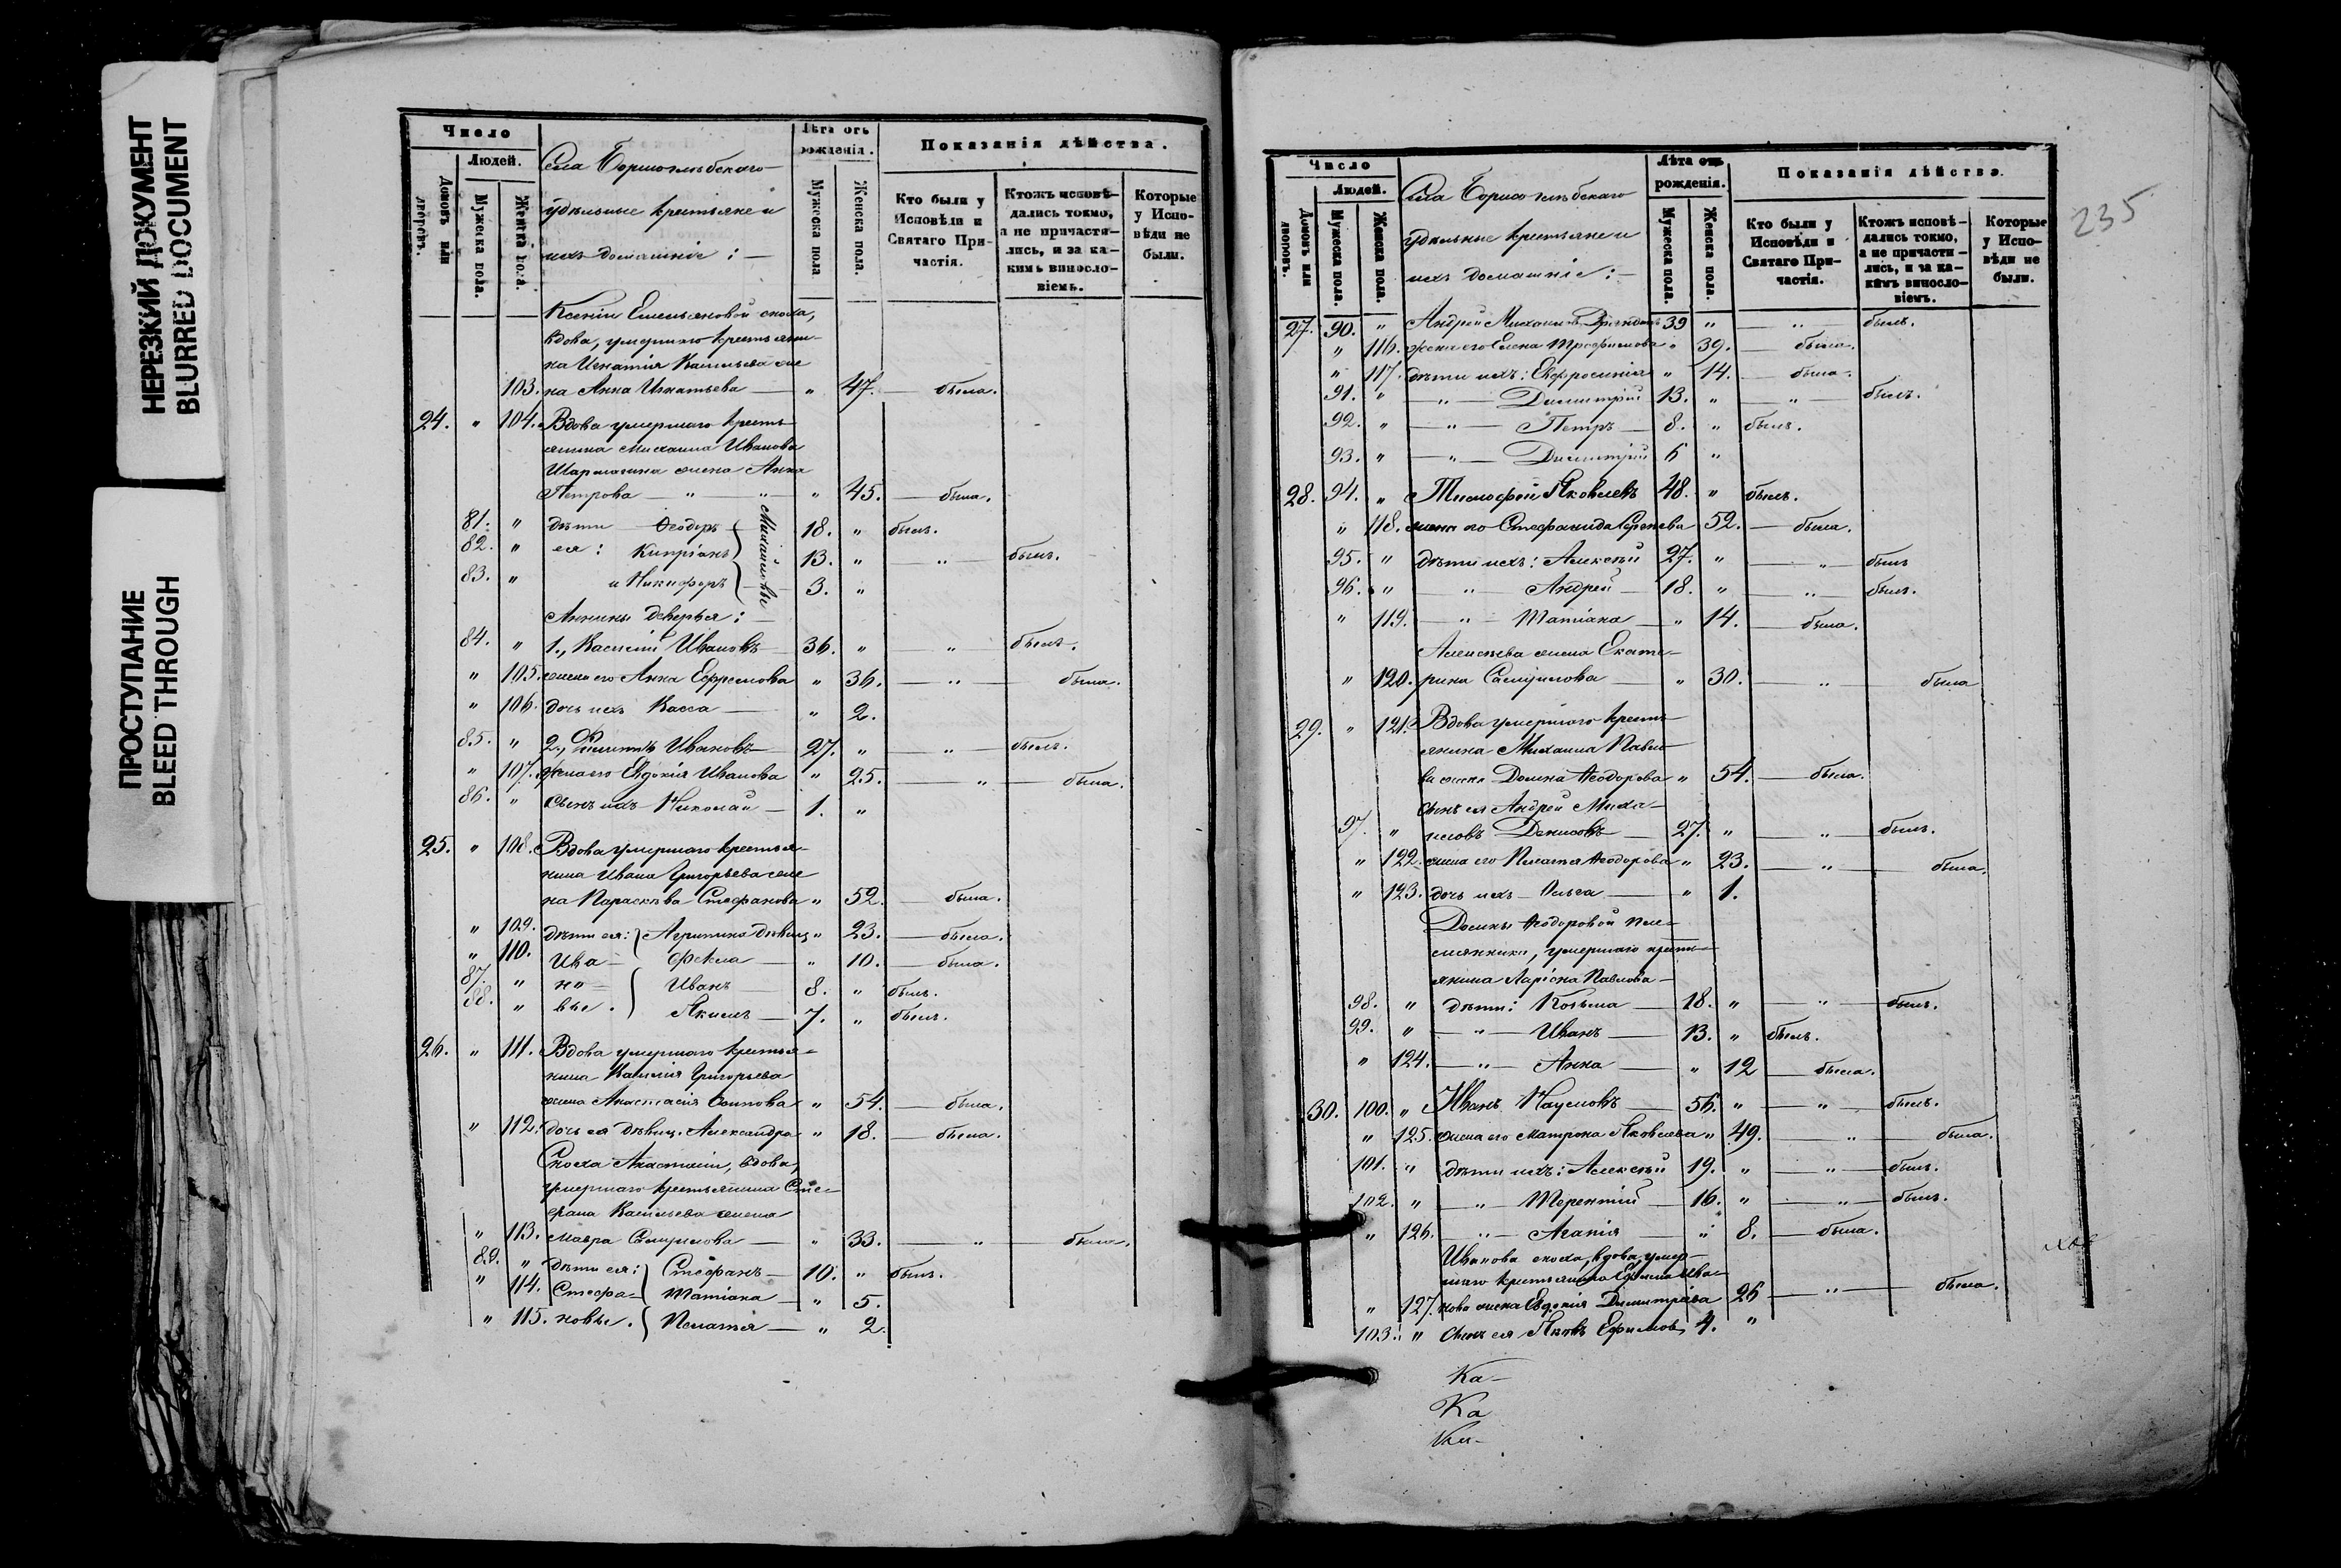 НЕРЕЗКИЙ ДОКУМЕНТ
BLURRED DOCUMENT
ПРОСТУПАНИЕ
BLEED THROUGH
Число
Людей.
Домовъ или дворовъ.
Мужеска пола.
Женска пола.
Села
удѣльные крестьяне и
ихъ домашніе :
Лѣта отъ рожденія.
Мужеска пола
Женска пола.
Показанія дѣйства.
Кто были у Исповѣди и Святаго Причастія.
Ктожъ исповѣдались токмо, а не причастились, и за какимъ винословіемъ.
Которые у Исповѣди не были.
Ксеніи Емельяновой сноха,
вдова, умершаго крестьяни-
на Игнатія Васильева же
103. на Анна Игнатьева — " 47. — была.
24. " 104. Вдова умершаго кресть-
янина Михаила Иванова
жена Анна
Петрова — " — " — " 45. — была.
81. " дѣти Ѳеодоръ 18. " былъ.
82. " ея : Кипріанъ 13. " — " — былъ.
83. " и Никифоръ 3. "
Михайловы
Аннины деверья :
84. " 1., Василій Ивановъ 36. " — " — былъ.
" 105. жена его Анна Ефремова " 36. — " — была.
" 106. дочь ихъ Васса — " 2.
85. " 2., Филиппъ Ивановъ 27. " — " — былъ.
" 107. жена его Евдокія Иванова " 25. — " — была.
86. " сынъ ихъ Николай — 1. "
25. " 108. Вдова умершаго крестья-
нина Ивана Григорьева же
на Параскѣва Стефанова " 52. — была.
" 109. дѣти ея: Агрипина дѣвиц. " 23. — была.
" 110. Ива- Ѳекла — " 10. — была.
87. " но- Иванъ 8. " былъ.
88. " вы . Якимъ — 7. " былъ.
26. " 111. Вдова умершаго крестья-
нина Василія Григорьева
жена Анастасія Осипова " 54. — была.
" 112. дочь ея дѣвиц. Александра " 18. — была.
Сноха Анастасіи, вдова,
умершаго крестьянина Сте-
фана Васильева жена
" 113. Мавра Самуилова — " 33. — " — была.
89. " дѣти ея: Стефанъ — 10. " былъ.
" 114. Стефа- Татіана — " 5.
" 115. новы . Пелагея — " 2.
235
Число
Людей.
Домовъ или дворовъ.
Мужеска пола.
Женска пола.
Села
удѣльные крестьяне и
ихъ домашніе :
Лѣта отъ рожденія.
Мужеска пола.
Женска пола.
Показанія дѣйства.
Кто были у Исповѣди и Святаго Причастія.
Ктожъ исповѣдались токмо, а не причастились, и за какимъ винословіемъ.
Которые у Исповѣди не были.
27. 90. " Андрей Михаиловъ 39 " — " — былъ.
" 116. жена его Елена Трофимова " 39. — была.
" 117. дѣти ихъ: Евфросинія " 14. — была.
91. " — " — Димитрій 13. " — " — былъ.
92. " — " — Петръ — 8. " былъ.
93. " — " — Димитрій 6 "
28. 94. " Тимофей Яковлевъ 48. " былъ.
" 118. жена его Стефанида Сергеева 52. — была.
95. " дѣти ихъ: Алексѣй 27. " — " — былъ
96. " " Андрей — 18. " — " — былъ.
" 119. — " — Татіана — " 14. — была.
Алексѣева жена Екате-
" 120. рина Самуилова — " 30. — " — была
29. " 121. Вдова умершаго кресть-
янина Михаила Павло-
ва жена Домна Ѳеодорова " 54. — была.
сынъ ея Андрей Миха-
97. " иловъ Денисовъ — 27. " — " — былъ.
" 122. жена его Пелагея Ѳеодорова " 23. — " — была.
" 123. дочь ихъ Ольга — " 1.
Домны Ѳеодоровой пле-
мянники, умершаго кресть-
янина Ларіона Павлова —
98. " дѣти: Козьма — 18. " — " — былъ.
99. " — " — Иванъ — 13. " былъ.
" 124. — " — Анна — " 12 — была.
30. 100. " Иванъ Наумовъ — 56. " — " — былъ.
" 125. жена его Матрона Яковлева " 49. — " — была.
101. " дѣти ихъ: Алексѣй 19. " — " — былъ.
102. " — " — Терентій — 16. " — " — былъ.
" 126. — " — Агапія — " 8. — была.
Иванова сноха, вдова, умер-
шаго крестьянина Ефима Ива-
" 127. нова жена Евдокія Димитріева 26 — " — была.
103. " сынъ ея Яковъ Ефимовъ 4. "
Ка-
Ка